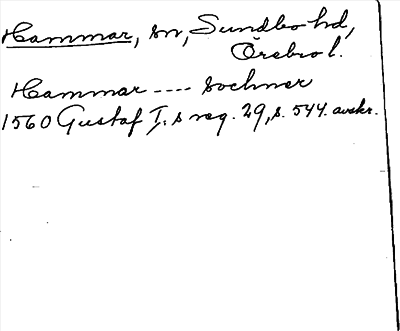 Hammar, sn, Sundbo hd,
Örebro l.
Hammar ---- sochner
1560 Gustaf I:s reg. 29, s. 544. avskr.